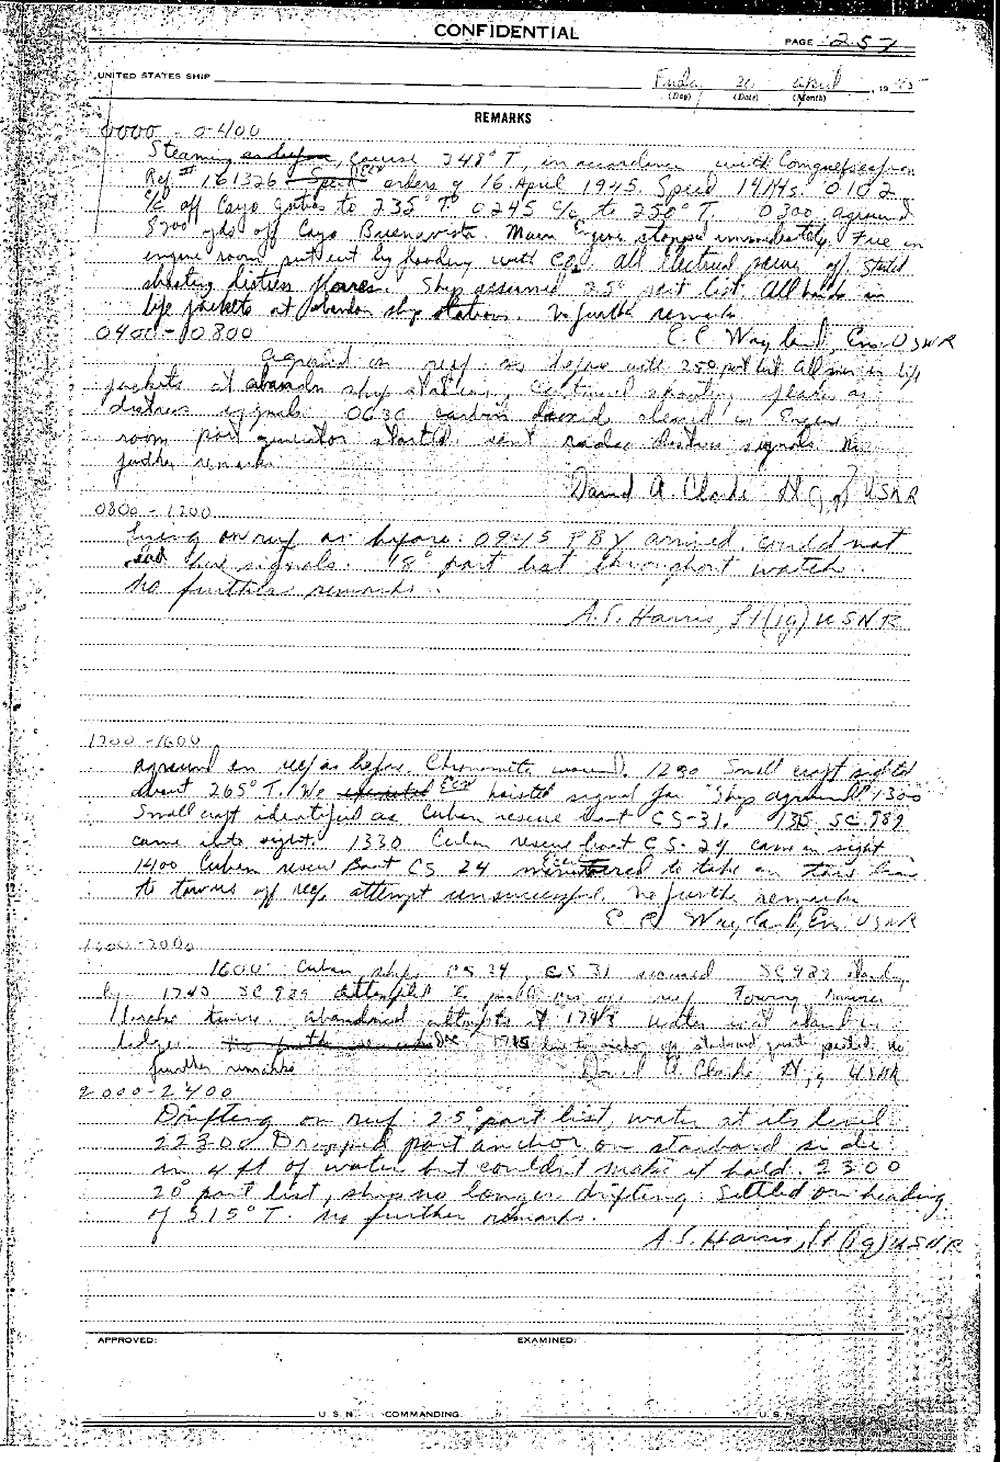 CONFIDENTIAL
PAGE 257
UNITED STATES SHIP Friday 20 April, 1945
(Day) (Date) (Month)
REMARKS
0000 - 0400
Steaming, course 248° T, in accordance with
Ref # 161326 orders of 16 April 1945. Speed 14 Kts. 0102
c/c off Cayo Jutias to 235° T. 0245 c/c to 250° T. 0300 aground
8200 yds off Cayo Buenavista. Main Engine stopped immediately. Fire in
engine room put out by flooding with CO2. All Electrical power off. Started
shooting distress flares. Ship assumed 25° port list. All hands in
life jackets at abandon ship stations. No further remarks
E. C. Wayland, Ens. USNR
0400 - 0800
Aground on reef as before with 25° port list. All men in life
jackets at abandon ship stations. Continued shooting flares as
distress signals. 0630 carbon dioxide cleared in Engine
room port generator started. sent radio distress signals. No
further remarks
David A. Clarke Lt (jg) USNR
0800 - 1200
on reef as before: 0945 PBY arrived. could not
read her signals. 18° port list throughout watch.
No further remarks.
A. S. Harris, Lt (jg) USNR
1200 - 1600
Aground on reef as before. Chronometer wound. 1230 Small craft sighted
about 265° T. We hoisted signal for "Ship aground" 1300
Small craft identified as Cuban rescue boat CS-31. SC 989
came into sight. 1330 Cuban rescue boat CS-24 came in sight
1400 Cuban rescue Boat CS 24 maneuvered to take on tow line
to tow us off reef, attempt unsuccessful. No further remarks
E. C. Wayland, Ens. USNR
1600 - 2000
1600 Cuban ships CS 24, CS 31 secured SC 989 stand
by 1740 SC 989 attempted to pull us off reef Towing
twice. abandoned attempts at 1748
1715 due to starboard parted. No
further remarks
David A Clarke Lt jg USNR
2000 - 2400
Drifting on reef: 25° port list, water at its level
2230 Dropped port anchor on starboard side
in 4 ft of water but couldn't make it hold. 2300
20° port list, ship no longer drifting. Settled on heading
of 315° T. No further remarks.
A. S. Harris, Lt (jg) USNR
APPROVED: EXAMINED:
U. S. N. COMMANDING. U. S. N.